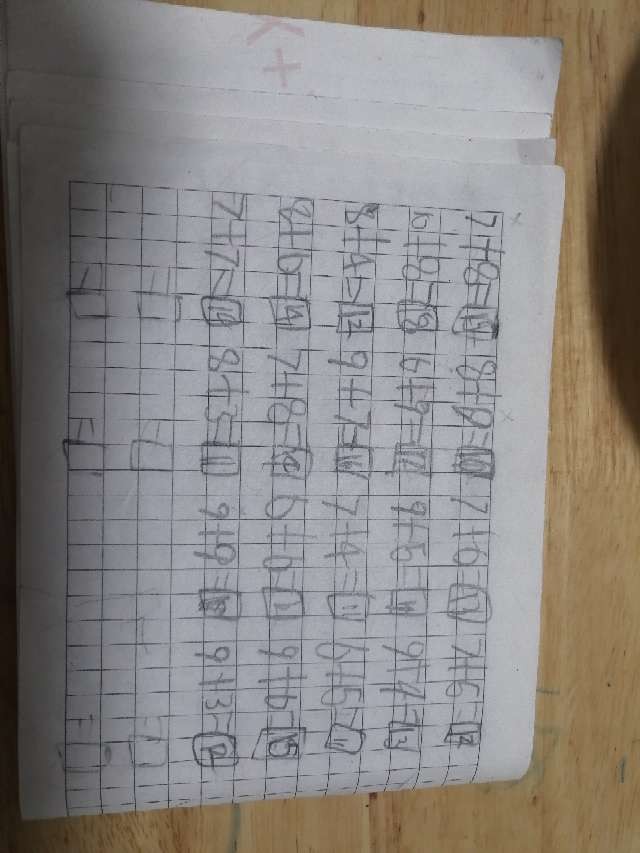 K+
7+8=15 8+9=17 7+6=13 7+5=12
10+8=18 6+9=15 9+5=14 9+4=13
8+4=12 9+7=16 7+4=11 6+5=11
8+6=14 7+8=15 6+6=12 9+6=15
7+7=14 8+3=11 9+9=18 9+3=12
= = =
= = =